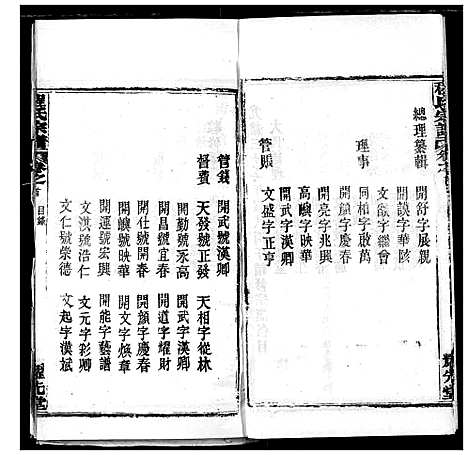 程氏宗譜
總理纂輯
開舒字展親
開談字華陔
文欲字繼會
理事
相字啟萬
開鎰字慶春
開亮字兆興
高嶼字映華
管賬
開武字漢卿
文盛字正亨
程氏宗譜
卷之首
目錄
管錢
開武號漢卿
督費
天發號正發
天相字從林
開勤號永高
開武字漢卿
開昌號宜春
開道字耀財
開仕號開春
開顏字慶春
開嶼號映華
開文字煥章
開運號宏興
開能字藝譜
文淇號浩仁
文元字彩卿
文仁號榮德
文起字漢斌